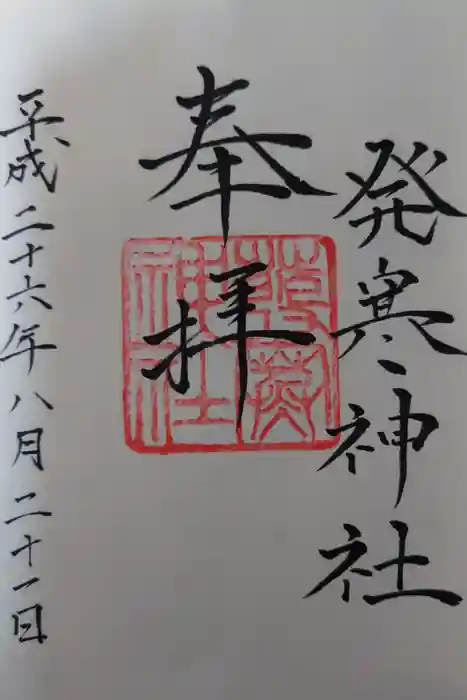 発寒神社
奉拝
平成二十六年八月二十一日